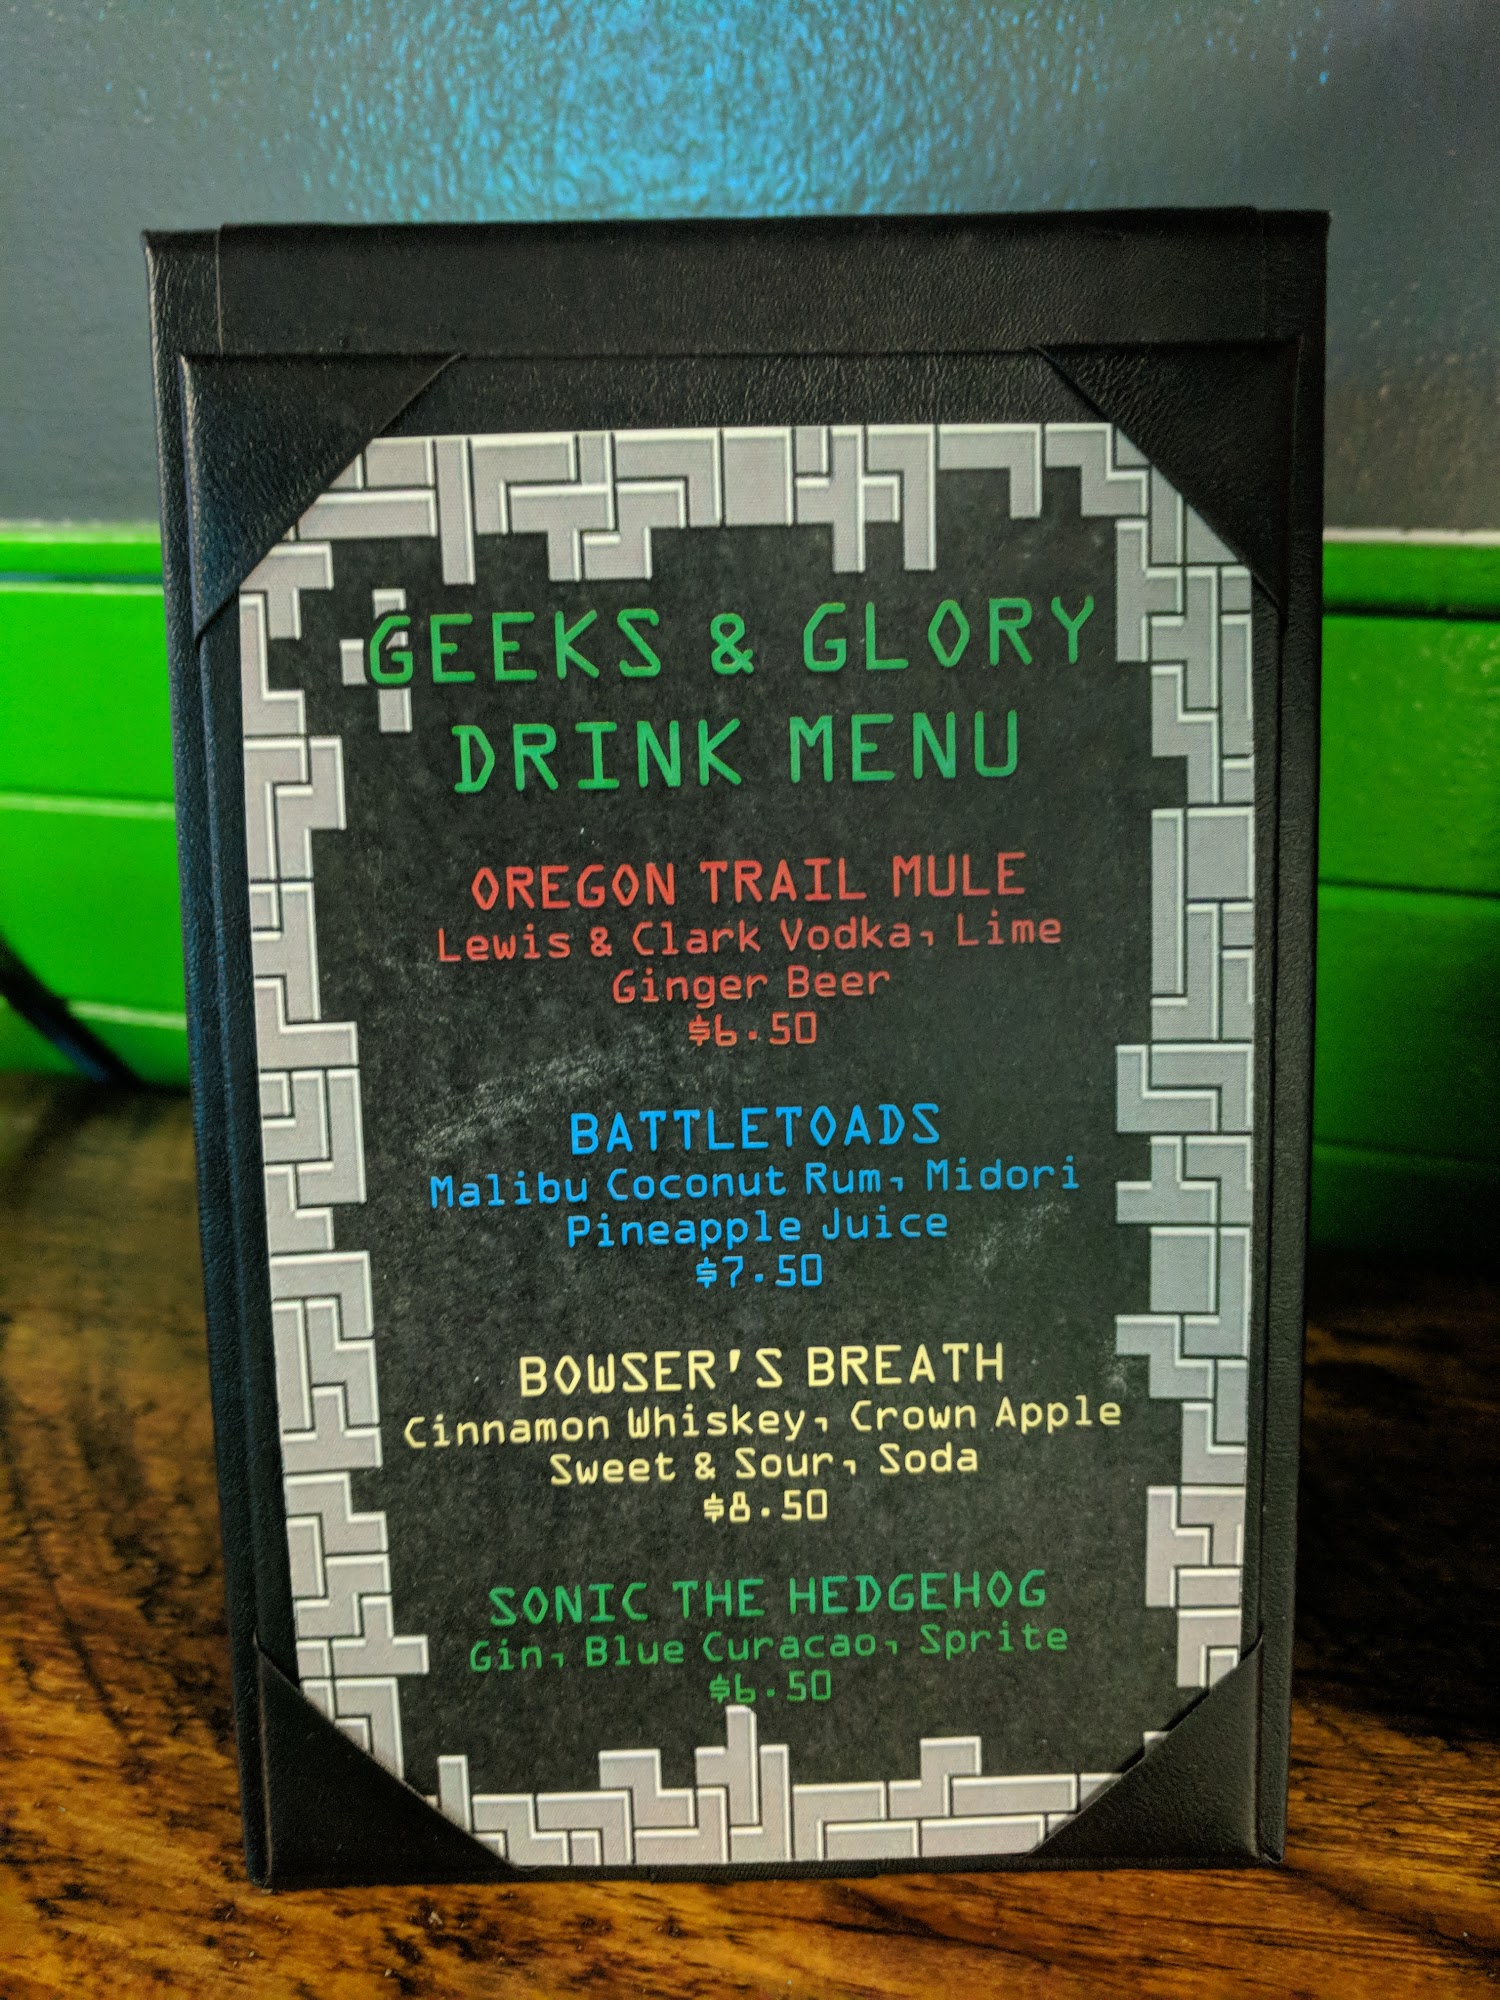 GEEKS & GLORY
DRINK MENU
OREGON TRAIL MULE
Lewis & Clark Vodka, Lime
Ginger Beer
$6.50
BATTLETOADS
Malibu Coconut Rum, Midori
Pineapple Juice
$7.50
BOWSER'S BREATH
Cinnamon Whiskey, Crown Apple
Sweet & Sour, Soda
$8.50
SONIC THE HEDGEHOG
Gin, Blue Curacao, Sprite
$6.50